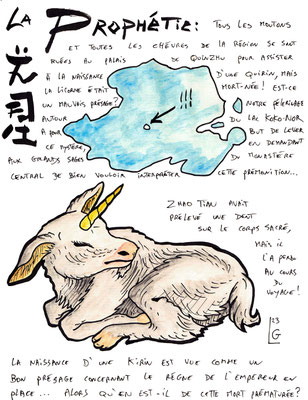 LA PROPHÉTIE: TOUS LES MOUTONS
ET TOUTES LES CHÈVRES DE LA RÉGION SE SONT
RUÉES AU PALAIS DE QUINZHU POUR ASSISTER
À LA NAISSANCE D'UNE QUIRIN, MAIS
LA LICORNE ÉTAIT MORT-NÉE! EST-CE
UN MAUVAIS PRÉSAGE? NOTRE PÈLERINAGE
AUTOUR DU LAC KOKO-NOR
A POUR BUT DE LEVER
CE MYSTÈRE, EN DEMANDANT
AUX GRANDS SAGES DU MONASTÈRE
CENTRAL DE BIEN VOULOIR INTERPRÉTER CETTE PRÉMONITION...
ZHAO TIAN AVAIT
PRÉLEVÉ UNE DENT
SUR LE CORPS SACRÉ,
MAIS IL
L'A PERDU
AU COURS
DU
VOYAGE!
23
LG
LA NAISSANCE D'UNE KIRIN EST VUE COMME UN
BON PRÉSAGE CONCERNANT LE RÈGNE DE L'EMPEREUR EN
PLACE... ALORS QU'EN EST-IL DE CETTE MORT PRÉMATURÉE?